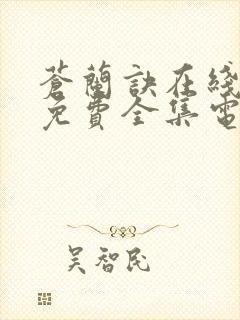 蒼蘭訣在綫
免費全集電
吴智民